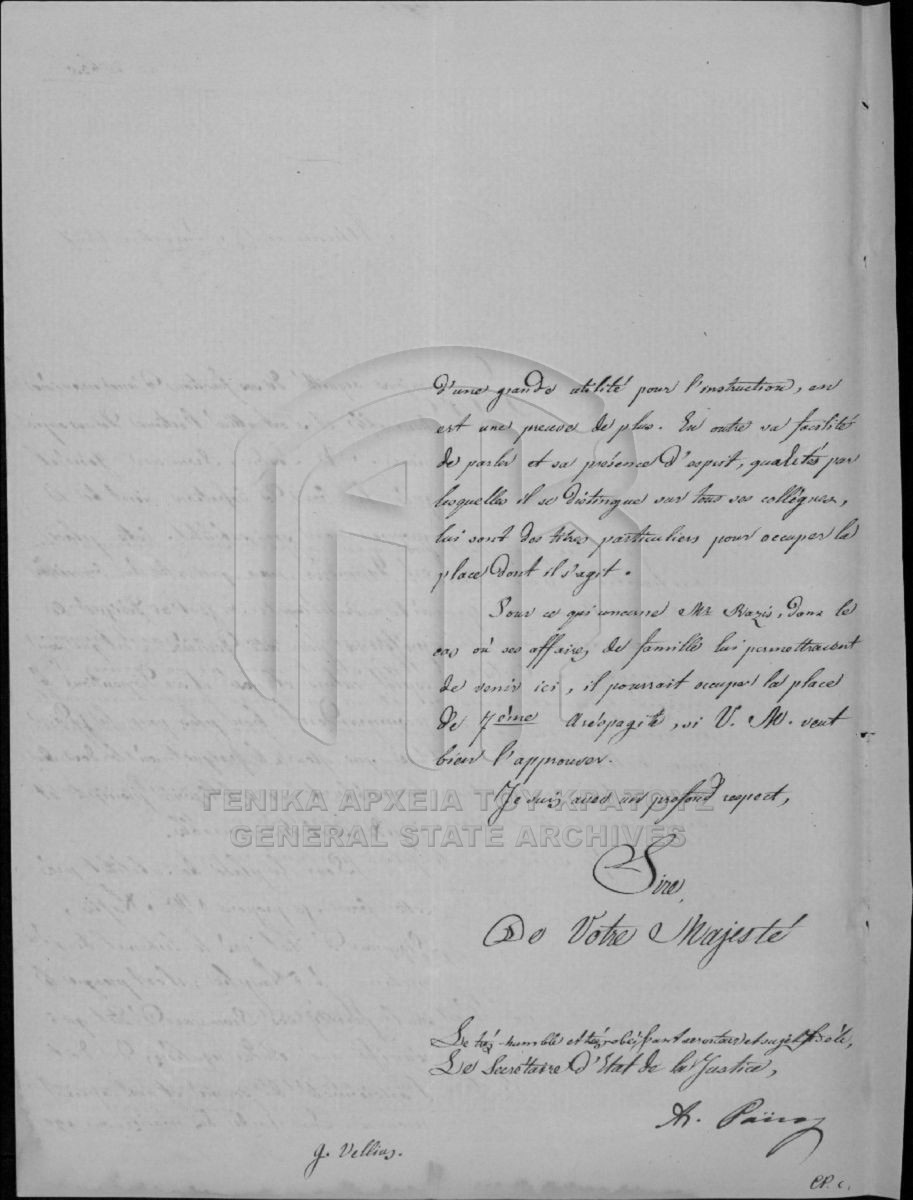 d'une grande utilité pour l'instruction, en
est une preuve de plus. En outre sa facilité
de parler et sa présence d'esprit, qualités par
lesquelles il se distingue sur tous ses collègues,
lui sont des titres particuliers pour occuper la
place dont il s'agit.
Pour ce qui concerne Mr Razis, dans le
cas où ses affaires de famille lui permettraient
de venir ici, il pourrait occuper la place
de 7ème Aréopagite, si V. M. veut
bien l'approuver.
Je suis avec un profond respect,
ΓΕΝΙΚΑ ΑΡΧΕΙΑ ΤΟΥ ΚΡΑΤΟΥΣ
GENERAL STATE ARCHIVES
Sire,
De Votre Majesté
Le très-humble et très-obéissant serviteur et sujet fidèle,
Le Secrétaire d'Etat de la Justice,
G. Vellius.